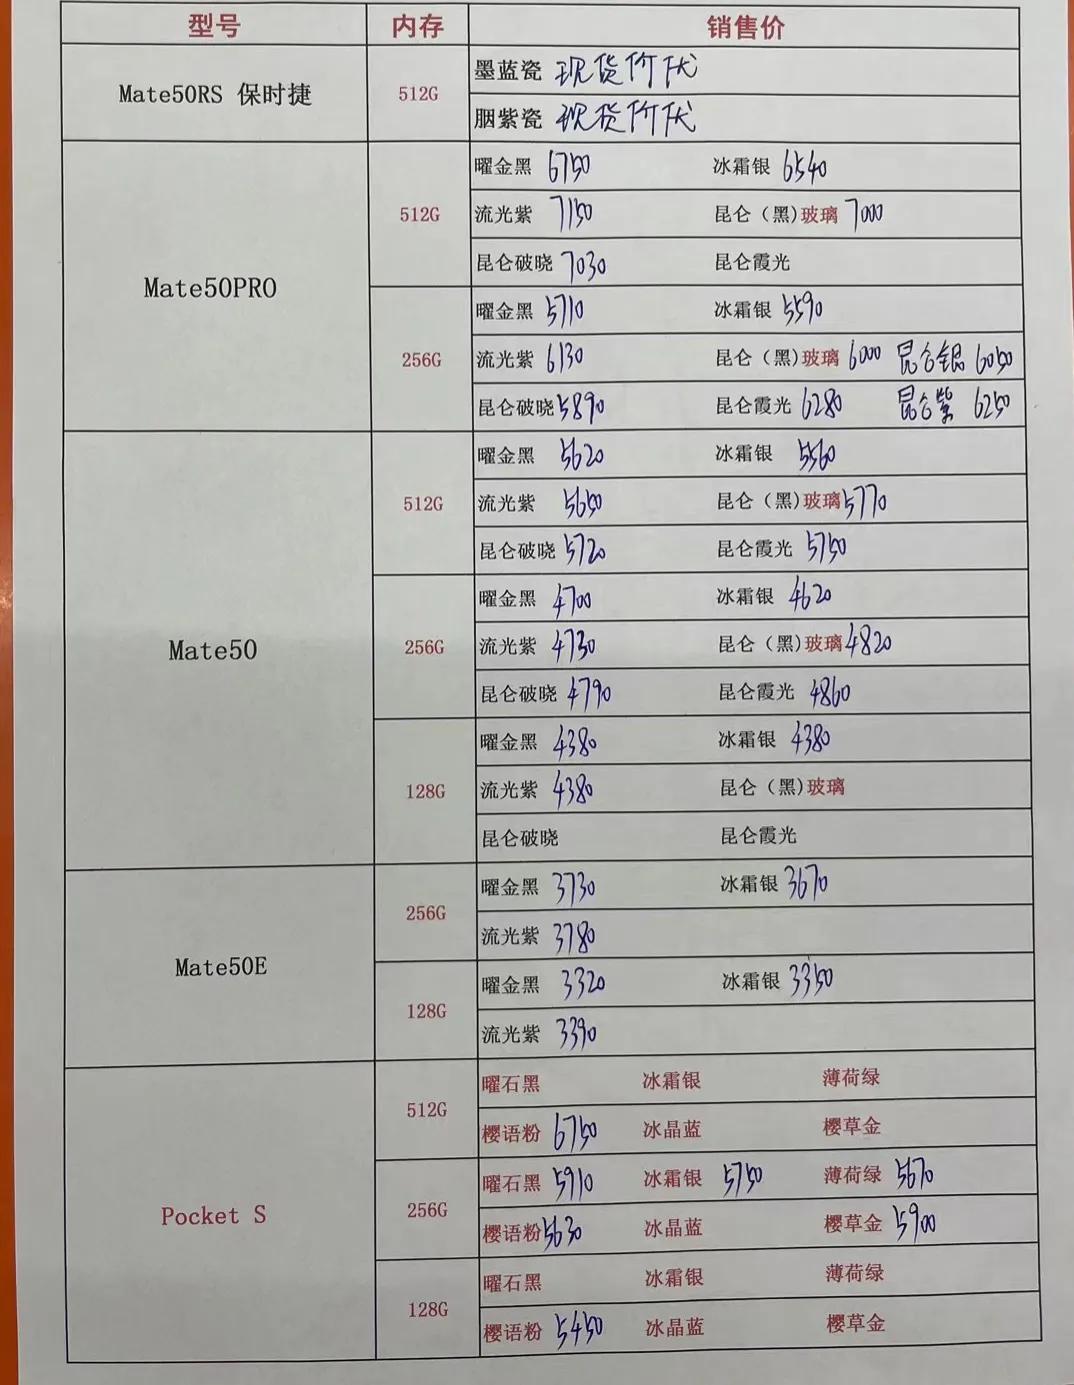 型号 内存 销售价
Mate50RS 保时捷 512G 墨蓝瓷 现货价优
胭紫瓷 现货价优
Mate50PRO 512G 曜金黑 6750 冰霜银 6540
流光紫 7150 昆仑（黑）玻璃 7000
昆仑破晓 7030 昆仑霞光
256G 曜金黑 5710 冰霜银 5590
流光紫 6130 昆仑（黑）玻璃 6000 昆仑银 6050
昆仑破晓 5890 昆仑霞光 6280 昆仑紫 6250
Mate50 512G 曜金黑 5620 冰霜银 5560
流光紫 5650 昆仑（黑）玻璃 5770
昆仑破晓 5720 昆仑霞光 5750
256G 曜金黑 4700 冰霜银 4620
流光紫 4730 昆仑（黑）玻璃 4820
昆仑破晓 4790 昆仑霞光 4860
128G 曜金黑 4380 冰霜银 4380
流光紫 4380 昆仑（黑）玻璃
昆仑破晓 昆仑霞光
Mate50E 256G 曜金黑 3730 冰霜银 3670
流光紫 3780
128G 曜金黑 3320 冰霜银 3350
流光紫 3390
Pocket S 512G 曜石黑 冰霜银 薄荷绿
樱语粉 6750 冰晶蓝 樱草金
256G 曜石黑 5910 冰霜银 5750 薄荷绿 5670
樱语粉 5630 冰晶蓝 樱草金 5900
128G 曜石黑 冰霜银 薄荷绿
樱语粉 5450 冰晶蓝 樱草金